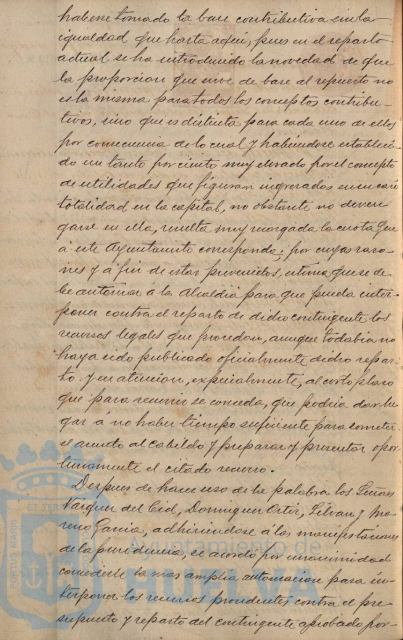 haberse tomado la base contributiva en la
igualdad que hasta aquí, pues en el reparto
actual se ha introducido la novedad de que
la proporcion que sirve de base al repuesto no
es la misma para todos los conceptos contribu-
tivos, sino que es distinta para cada uno de ellos
por consecuencia de lo cual y habiendose estableci-
do un tanto por ciento muy elevado por el concepto
de utilidades que figuran ingresadas en su casi
totalidad en la capital, no obstante no deven-
garse en ella, resulta muy recargada la cuota que
á este Ayuntamiento corresponde; por cuyas razo-
nes y á fin de estar prevenidos, estima que se de-
be autorizar á la Alcaldia para que pueda inter-
poner contra el reparto de dicho contingente los
recursos legales que procedan, aunque todabia no
haya sido publicado oficialmente dicho repar-
to y en atencion, especialmente, al corto plazo
que para recurrir se conceda, que podria dar lu-
gar á no haber tiempo suficiente para someter
el asunto al Cabildo y preparar y presentar opor-
tunamente el citado recurso.
Despues de hacer uso de la palabra los Señores
Vazquez del Cid, Dominguez Ortiz, Seliva y Mo-
reno Garcia, adhiriendose á las manifestaciones
de la presidencia, se acordó por unanimidad
concederle la mas amplia autorizacion para in-
terponer los recursos procedentes contra el pre-
supuesto y reparto del contingente aprobado por
PORTUS MARIS
ET TER